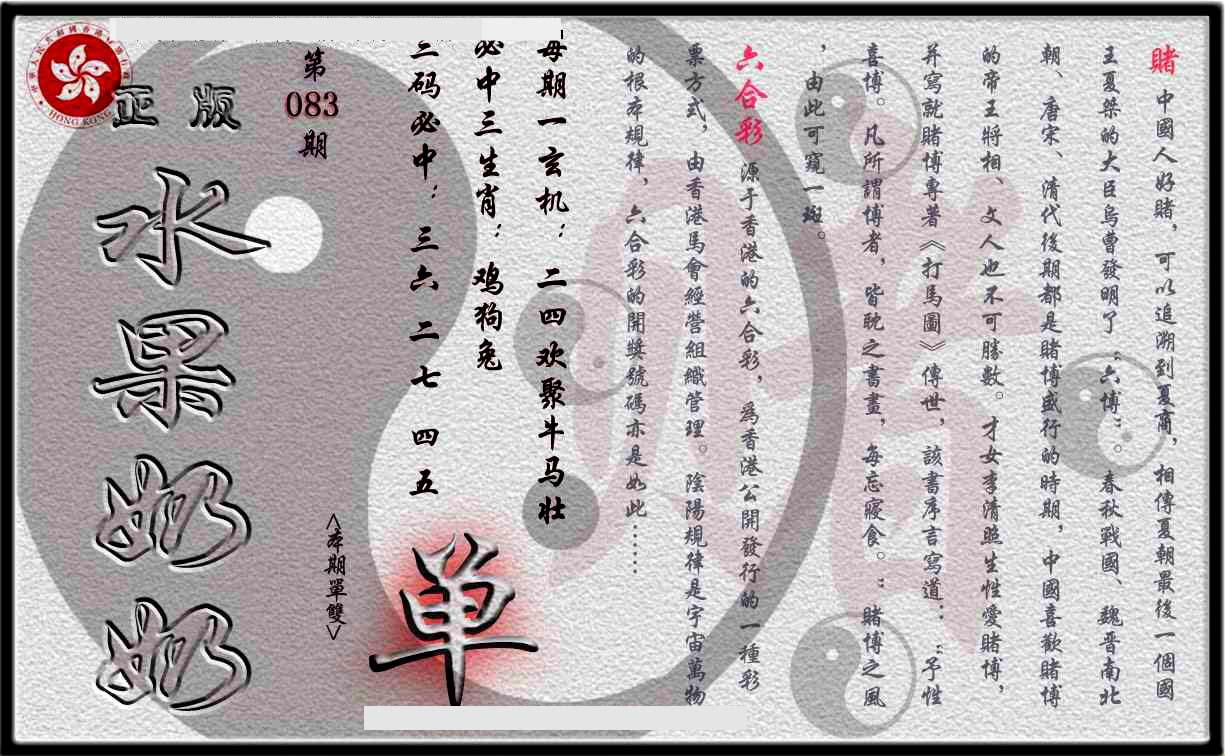 賭 中國人好賭，可以追溯到夏商，相傳夏朝最後一個國
王夏桀的大臣烏曹發明了“六博”。春秋戰國、魏晋南北
朝、唐宋、清代後期都是賭博盛行的時期，中國喜歡賭博
的帝王將相、文人也不可勝數。才女李清照生性愛賭博，
并寫就賭博專著《打馬圖》傳世，該書序言寫道：“予性
喜博。凡所謂博者，皆耽之書晝，每忘寢食。”賭博之風
，由此可窺一斑。
六合彩 源于香港的六合彩，為香港公開發行的一種彩
票方式，由香港馬會經營組織管理。陰陽規律是宇宙萬物
的根本規律，六合彩的開獎號碼亦是如此……
每期一玄机：二四欢聚牛马壮
必中三生肖：鸡狗兔
三码必中：三六 二七 四五
<本期單雙>
单
第083期
正版
水果奶奶
HONG KONG